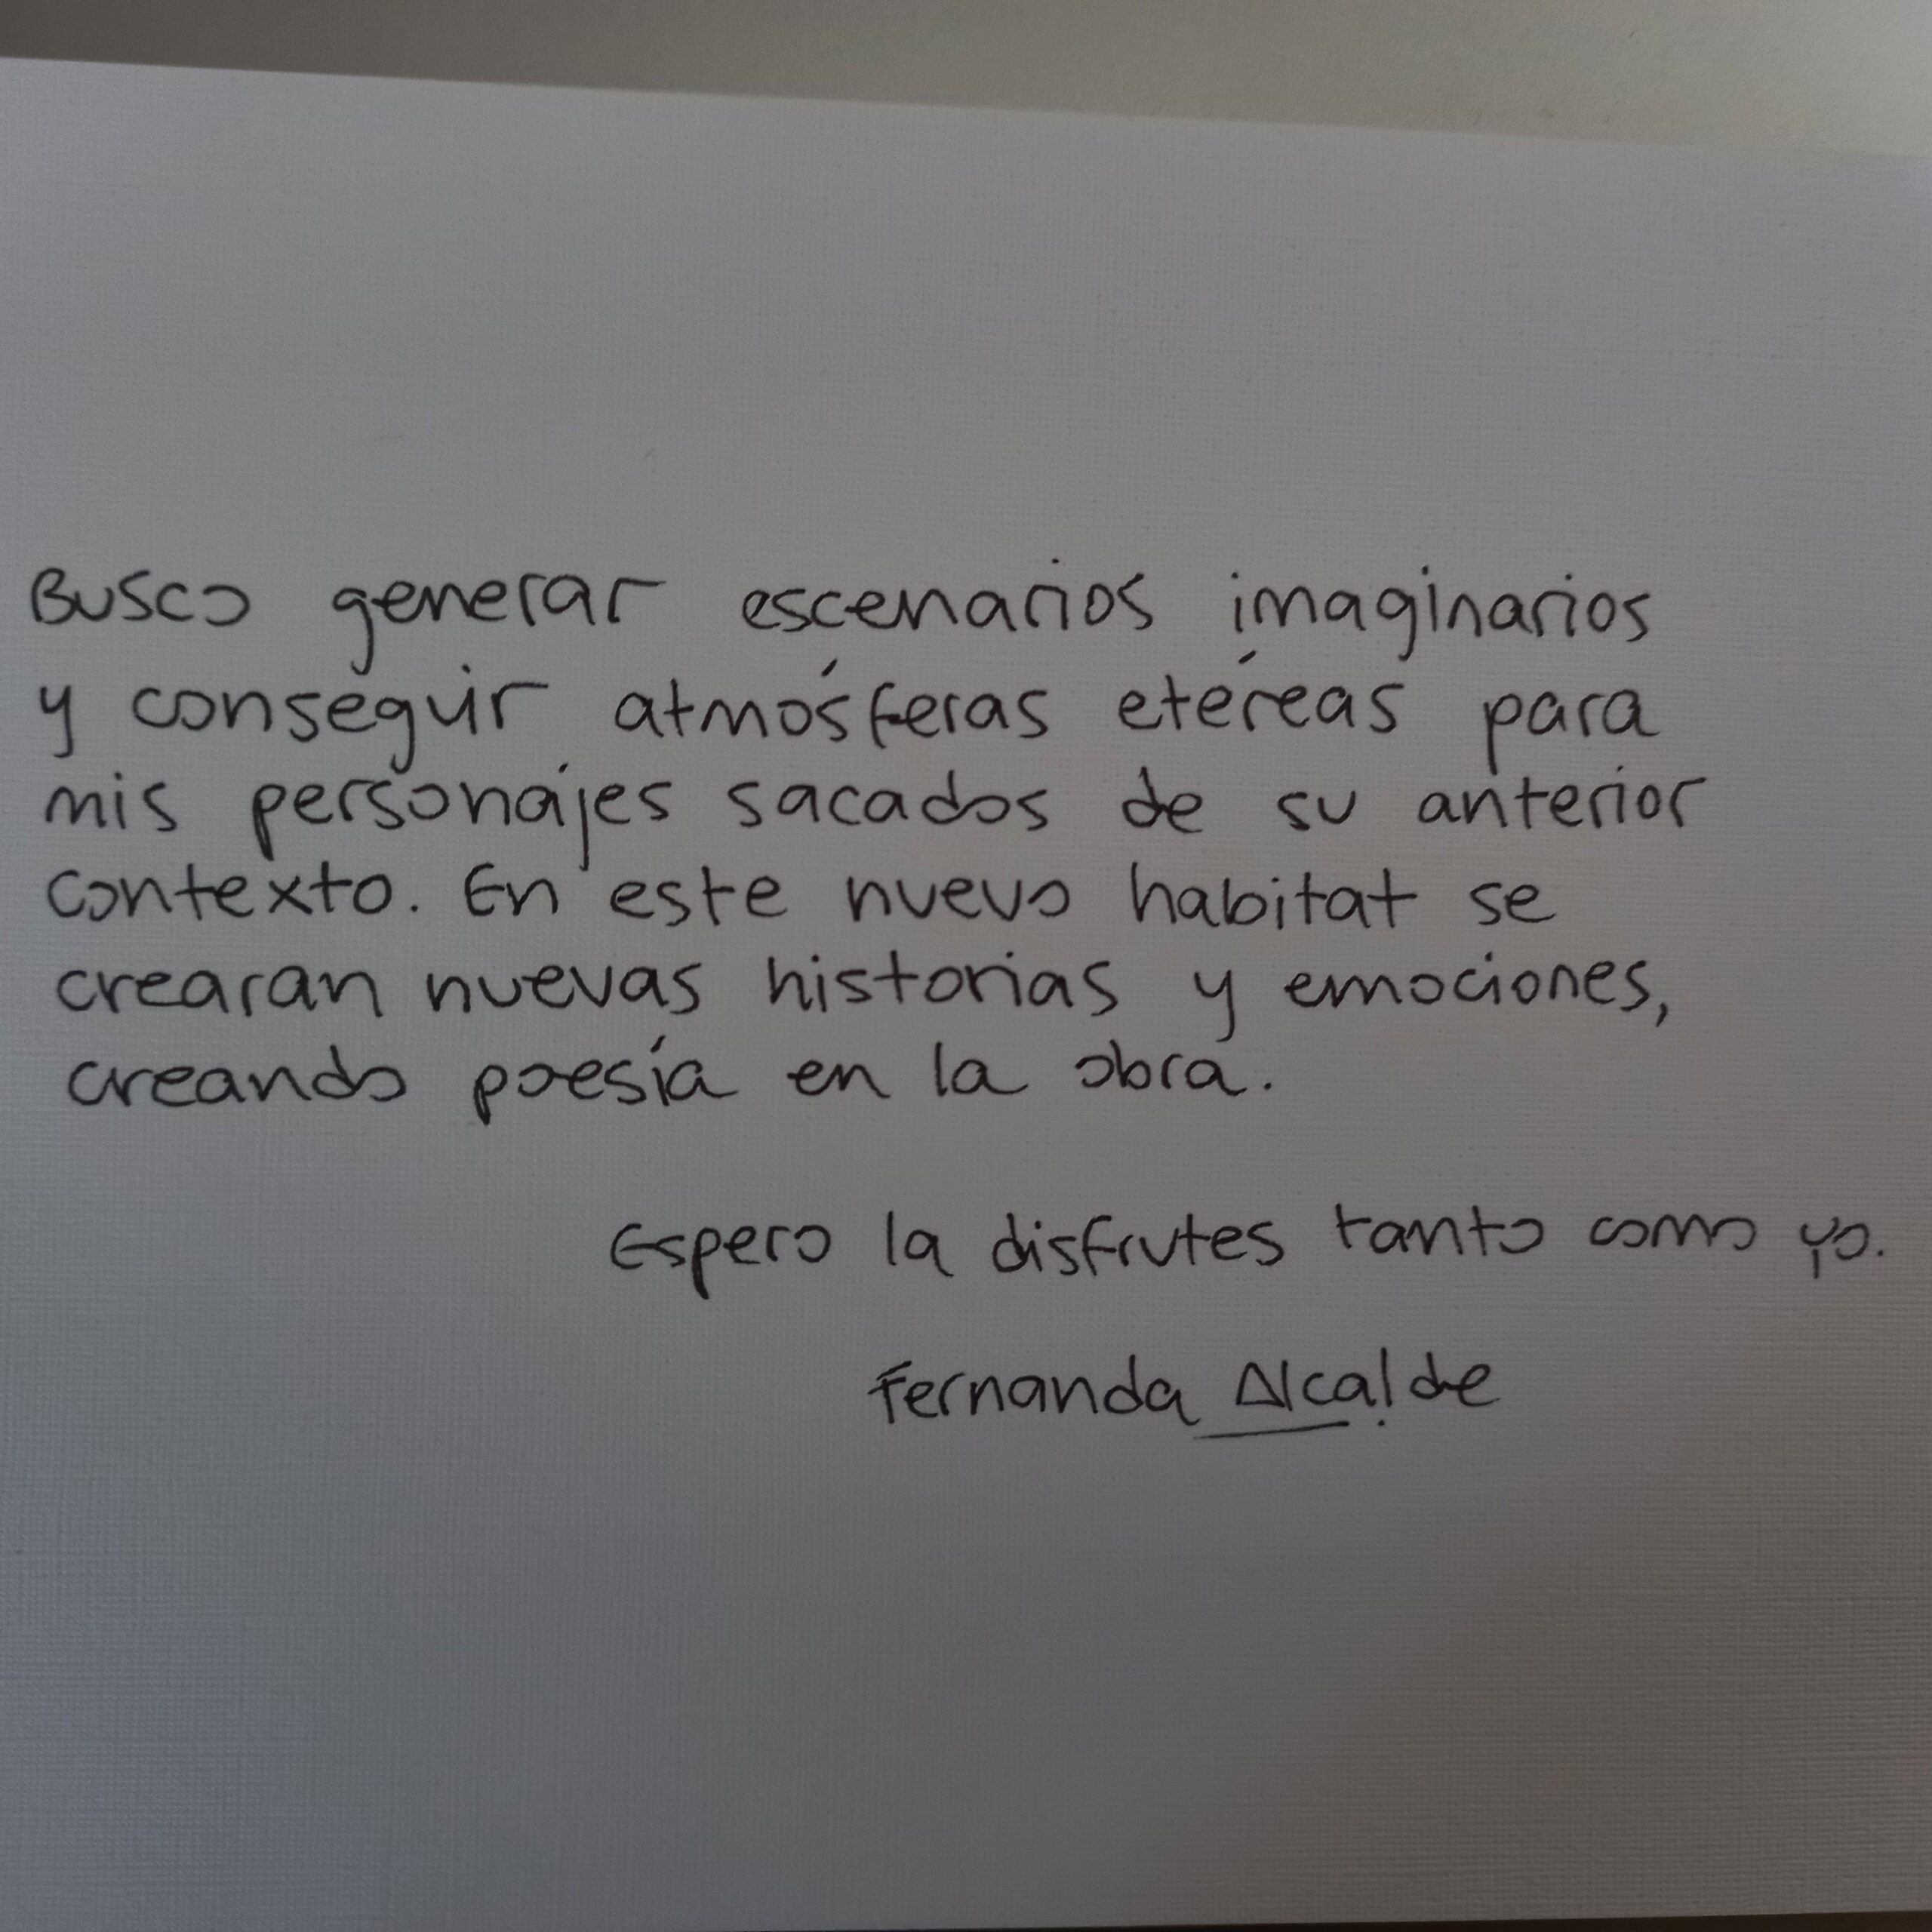 Busco generar escenarios imaginarios
y conseguir atmósferas etéreas para
mis personajes sacados de su anterior
contexto. En este nuevo habitat se
crearan nuevas historias y emociones,
creando poesía en la obra.
Espero la disfrutes tanto como yo.
Fernanda Alcalde